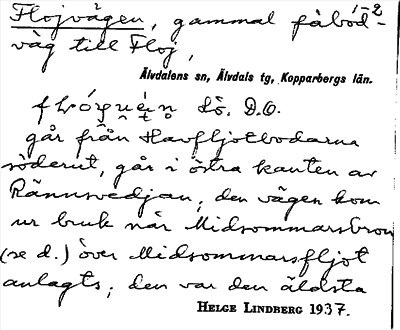 Flojvägen, gammal fäbod-
väg till Floj,
Älvdalens sn, Älvdals tg, Kopparbergs län.
Lö. D.O.
går från Havfljotbodarna
söderut, går i östra kanten av
Rännsvedjan; den vägen kom
ur bruk når Midsommarsbron
(se d.) över Midsommarsfljot
anlagts; den var den äldsta
HELGE LINDBERG 1937.